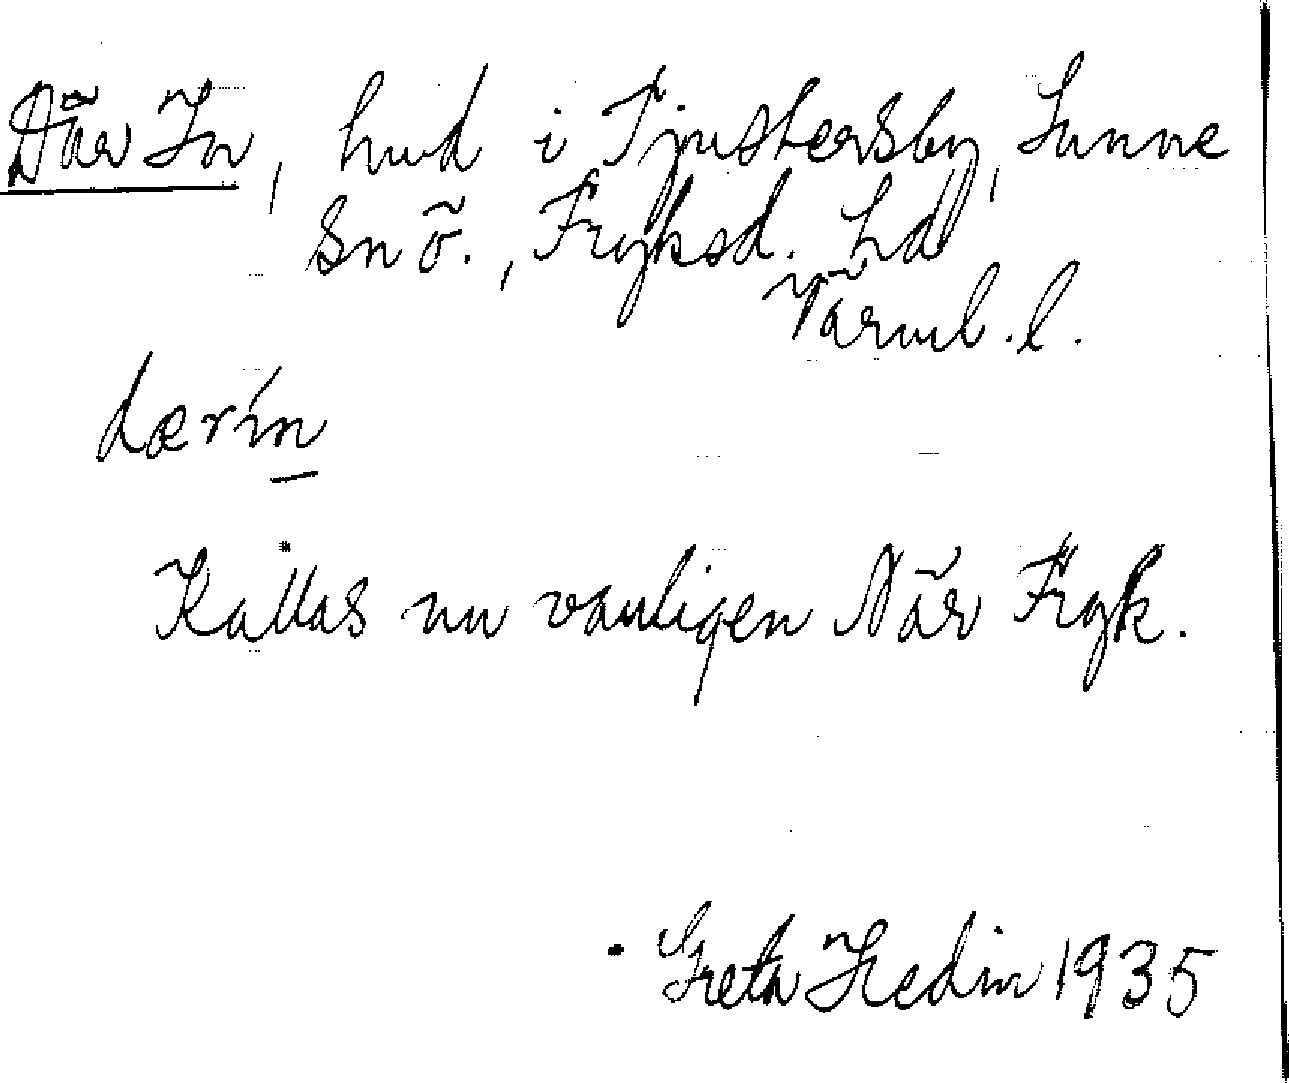 Där In, hmd i Tjustersby, Sunne
sn ö., Fryksd. hd
Värml. l.
dærin
Kallas nu vanligen När Fryk.
Greta Hedin 1935